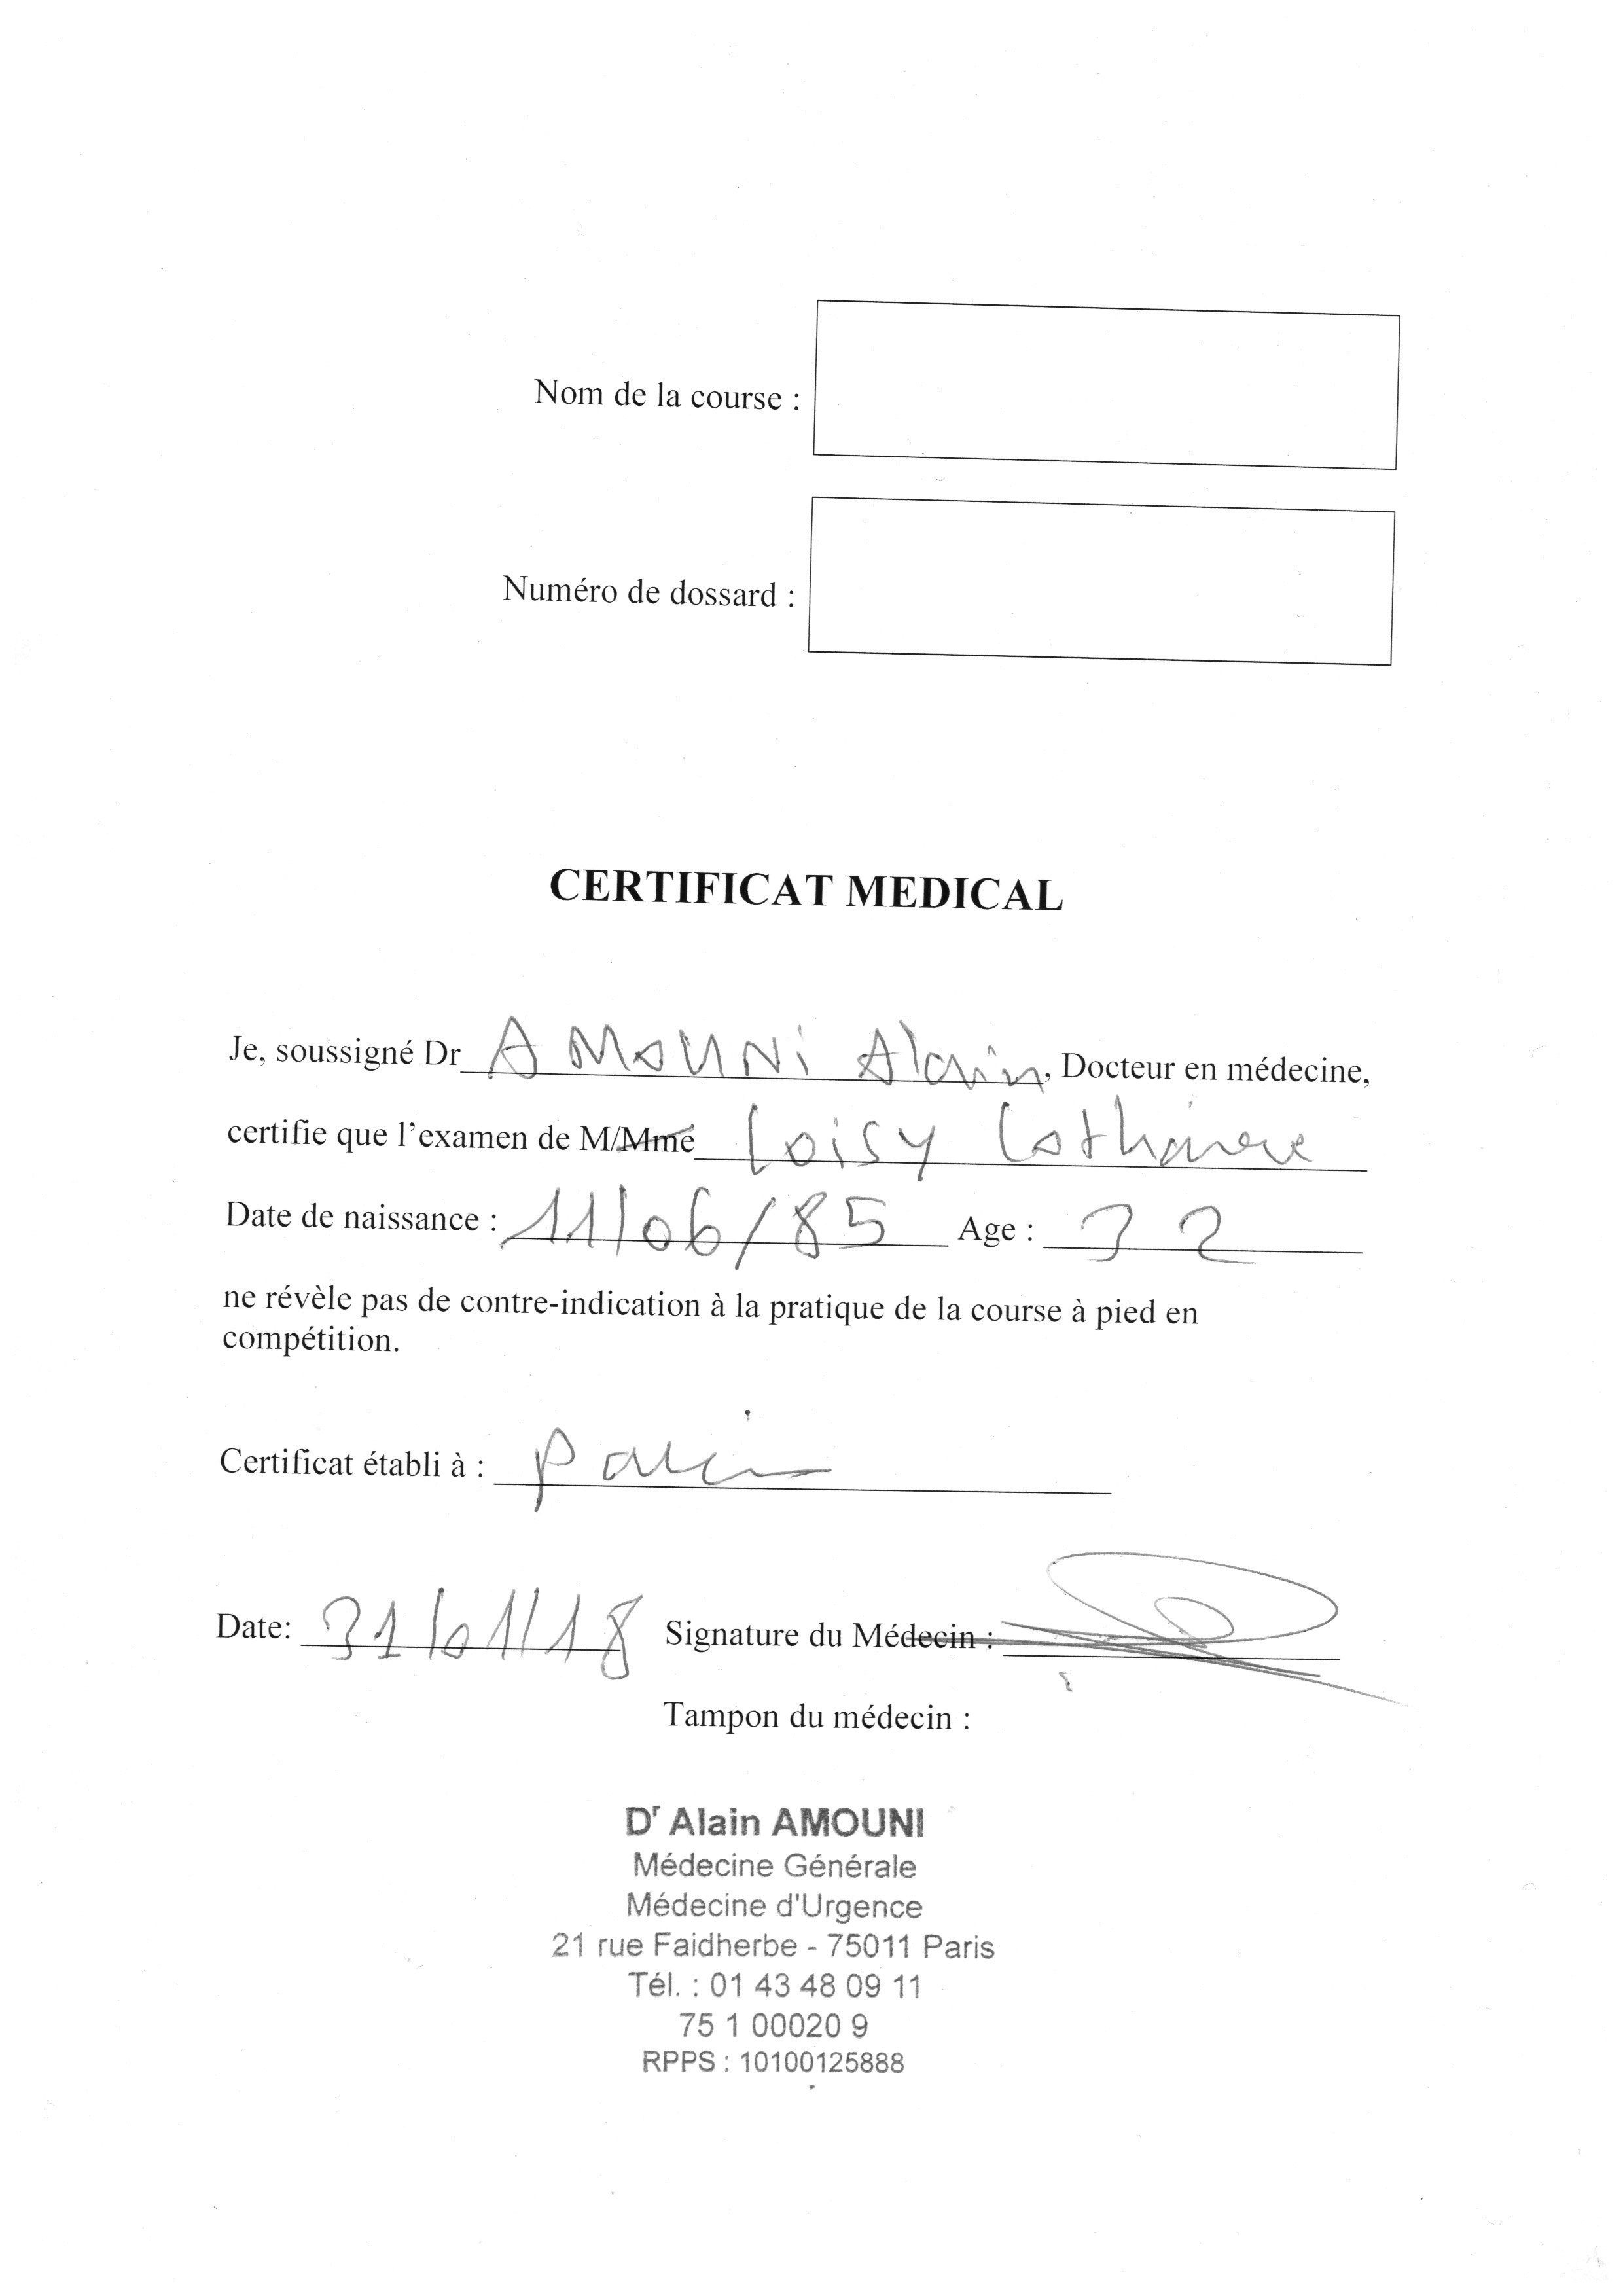 Nom de la course :
Numéro de dossard :
CERTIFICAT MEDICAL
Je, soussigné Dr AMOUNI Alain, Docteur en médecine,
certifie que l'examen de M/Mme Loisy
Date de naissance : 11/06/85 Age : 32
ne révèle pas de contre-indication à la pratique de la course à pied en
compétition.
Certificat établi à : Paris
Date: 31/01/18 Signature du Médecin :
Tampon du médecin :
Dr Alain AMOUNI
Médecine Générale
Médecine d'Urgence
21 rue Faidherbe - 75011 Paris
Tél. : 01 43 48 09 11
75 1 00020 9
RPPS : 10100125888